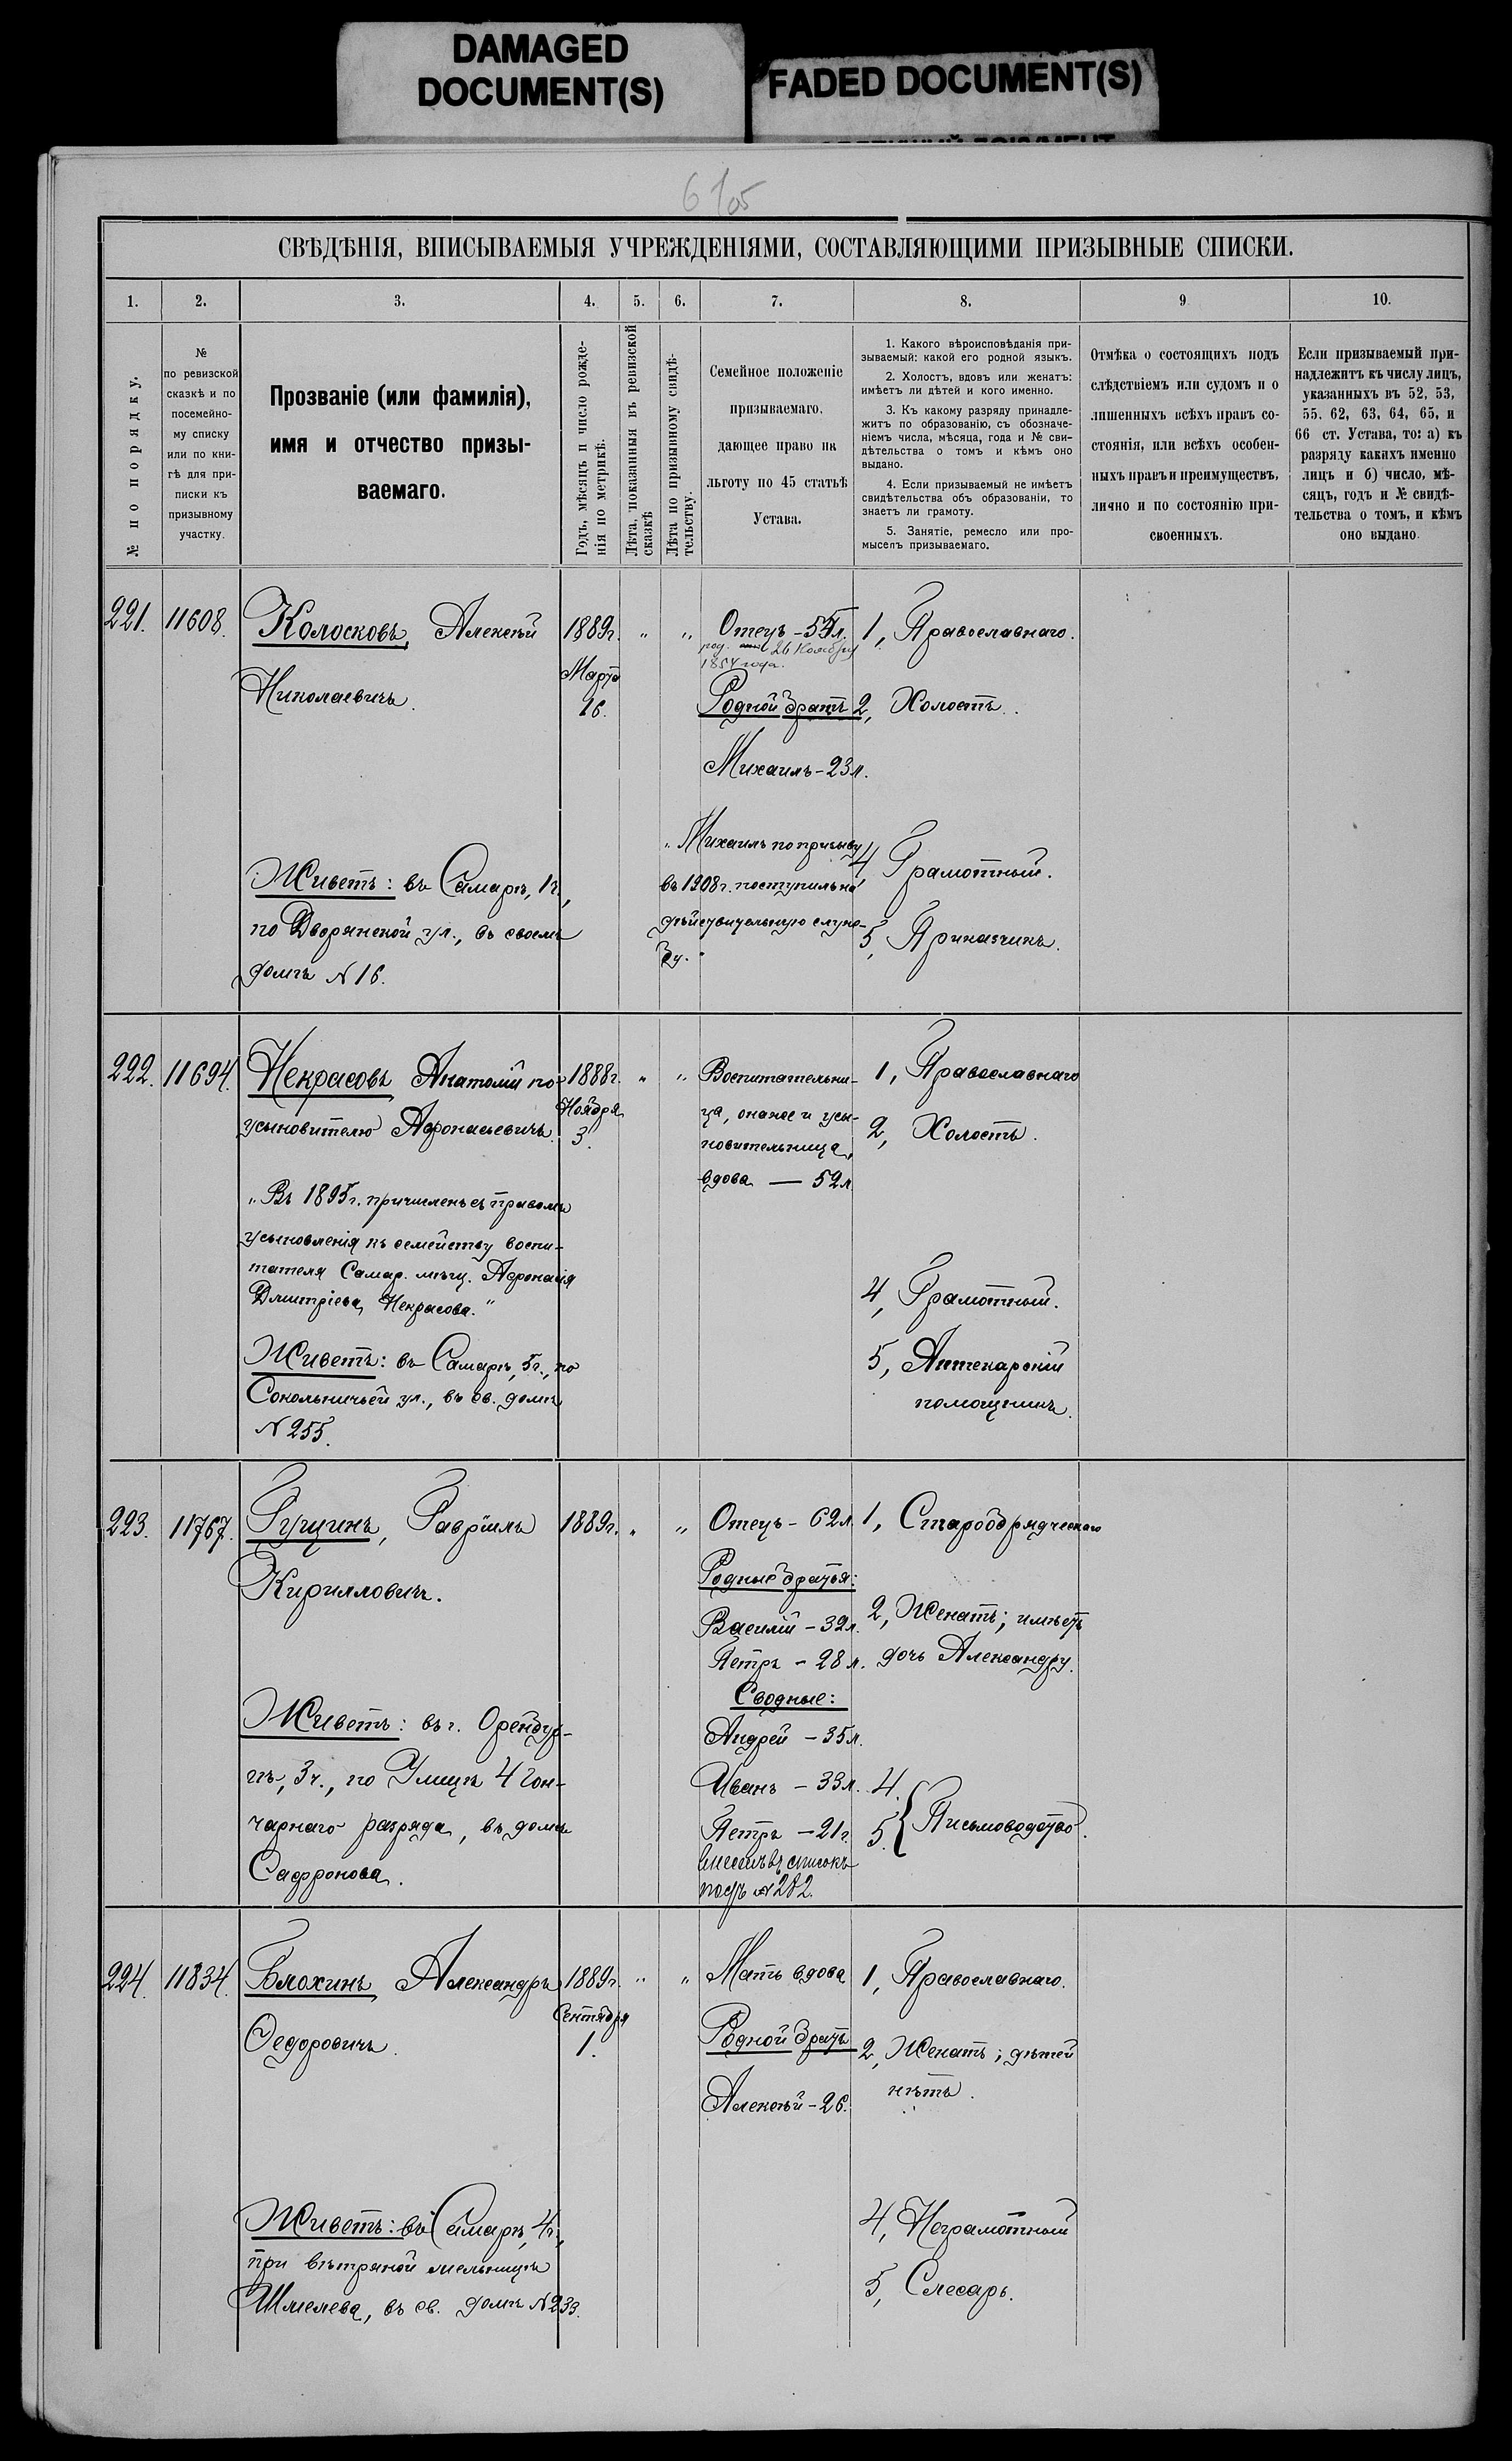 DAMAGED
DOCUMENT(S)
FADED DOCUMENT(S)
СВѢДѢНІЯ, ВПИСЫВАЕМЫЯ УЧРЕЖДЕНІЯМИ, СОСТАВЛЯЮЩИМИ ПРИЗЫВНЫЕ СПИСКИ.
1.
2.
3.
4.
5.
6.
7.
8.
9
10.
№ по порядку.
№
по ревизской
сказкѣ и по
посемейно-
му списку
или по кни-
гѣ для при-
писки къ
призывному
участку.
Прозваніе (или фамилія),
имя и отчество призы-
ваемаго.
Годъ, мѣсяцъ и число рожде-
нія по метрикѣ.
Лѣта, показанныя въ ревизской
сказкѣ
Лѣта по призывному свидѣ-
тельству.
Семейное положеніе
призываемаго,
дающее право на
льготу по 45 статьѣ
Устава.
1. Какого вѣроисповѣданія при-
зываемый: какой его родной языкъ.
2. Холостъ, вдовъ или женатъ:
имѣетъ ли дѣтей и кого именно.
3. Къ какому разряду принадле-
житъ по образованію, съ обозначе-
ніемъ числа, мѣсяца, года и № сви-
дѣтельства о томъ и кѣмъ оно
выдано.
4. Если призываемый не имѣетъ
свидѣтельства объ образованіи, то
знаетъ ли грамоту.
5. Занятіе, ремесло или про-
мыселъ призываемаго.
Отмѣка о состоящихъ подъ
слѣдствіемъ или судомъ и о
лишенныхъ всѣхъ правъ со-
стоянія, или всѣхъ особен-
ныхъ правъ и преимуществъ,
лично и по состоянію при-
своенныхъ.
Если призываемый при-
надлежитъ къ числу лицъ,
указанныхъ въ 52, 53,
55. 62, 63, 64, 65, и
66 ст. Устава, то: а) къ
разряду какихъ именно
лицъ и б) число, мѣ-
сяцъ, годъ и № свидѣ-
тельства о томъ, и кѣмъ
оно выдано.
221.
11608.
Колосковъ, Алексѣй
Николаевичъ.
Живетъ: въ Самарѣ, 1ч.,
по Дворянской ул., въ своемъ
домѣ № 16.
1889г.
Марта
16.
"
"
Отецъ - 54л.
род. 26 Ноября
1854 года.
Родной братъ
Михаилъ - 23л.
"Михаилъ по призыву
въ 1908г. поступилъ на
дѣйствительную служ-
бу."
1, Православнаго.
2, Холостъ.
4 Грамотный.
5, Приказчикъ.
222.
11694.
Некрасовъ, Анатолій по
усыновителю Афонасьевичъ.
"Въ 1895г. причисленъ съ правомъ
усыновленія къ семейству воспи-
тателя Самар. мѣщ. Афонасія
Дмитріева Некрасова."
Живетъ: въ Самарѣ, 5ч., по
Сокольничьей ул., въ св. домѣ
№ 255.
1888г.
Ноября
3.
"
"
Воспитательни-
ца, она же и усы-
новительница,
вдова — 52л.
1, Православнаго
2, Холостъ.
4, Грамотный.
5, Аптекарскій
помощникъ.
223.
11767.
Гущинъ, Гавріилъ
Кирилловичъ.
Живетъ: въ г. Оренбур-
гѣ, 3ч., по Улицѣ 4 Гон-
чарнаго разряда, въ домѣ
Сафронова.
1889г.
"
"
Отецъ - 62л
Родные братья:
Василій - 32л.
Петръ - 28л.
Сводные:
Андрей - 35л.
Иванъ - 33л.
Петръ - 21г.
внесенъ въ списокъ
подъ № 282.
1, Старообрядческаго
2, Женатъ; имѣетъ
дочь Александру.
4.
5. Письмоводство.
224.
11834.
Блохинъ, Александръ
Ѳедоровичъ.
Живетъ: въ Самарѣ, 4ч.,
при вѣтряной мельницѣ
Шмелева, въ св. домѣ № 233.
1889г.
Сентября
1.
"
"
Мать вдова
Родной братъ
Алексѣй - 26.
1, Православнаго.
2, Женатъ; дѣтей
нѣтъ.
4, Неграмотный
5, Слесарь.